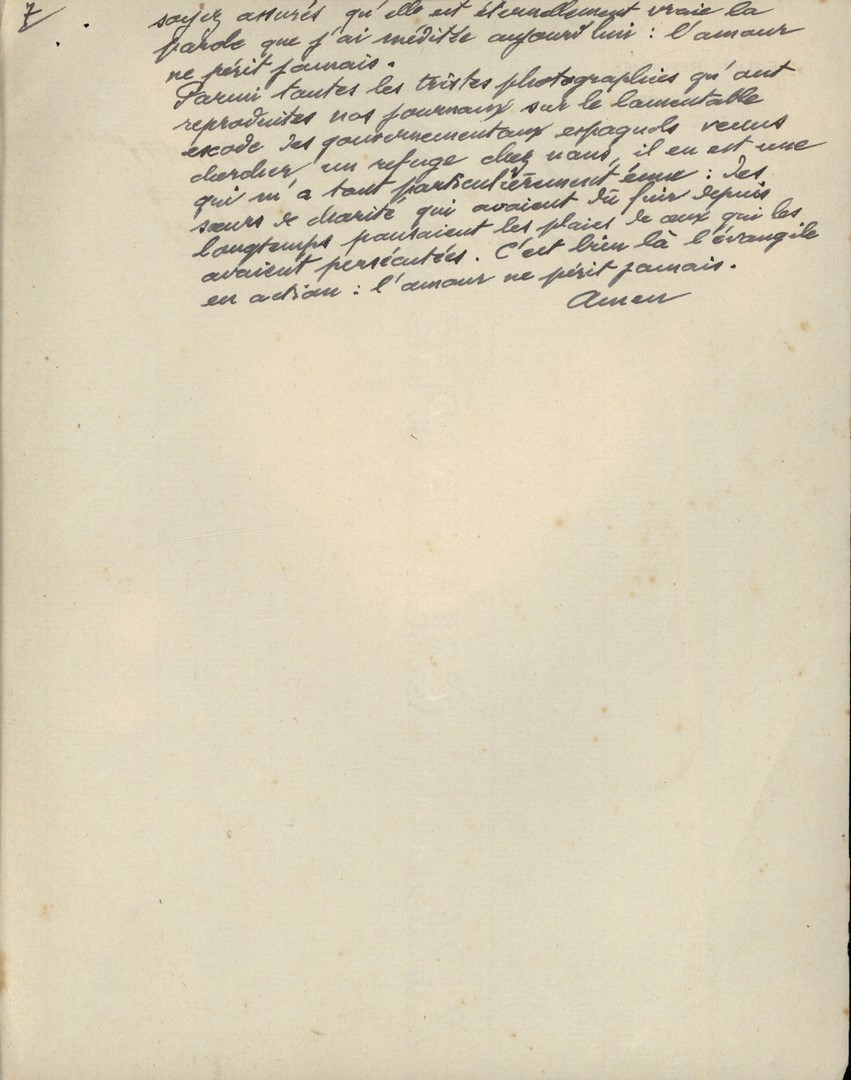 7
soyez assurés qu'elle est éternellement vraie la
parole que j'ai méditée aujourd'hui : l'amour
ne périt jamais.
Parmi toutes les tristes photographies qu'ont
reproduites nos journaux sur le lamentable
exode des gouvernementaux espagnols venus
chercher un refuge chez nous, il en est une
qui m'a tout particulièrement émue : des
sœurs de charité qui avaient dû fuir depuis
longtemps pansaient les plaies de ceux qui les
avaient persécutées. C'est bien là l'évangile
en action : l'amour ne périt jamais.
Amen